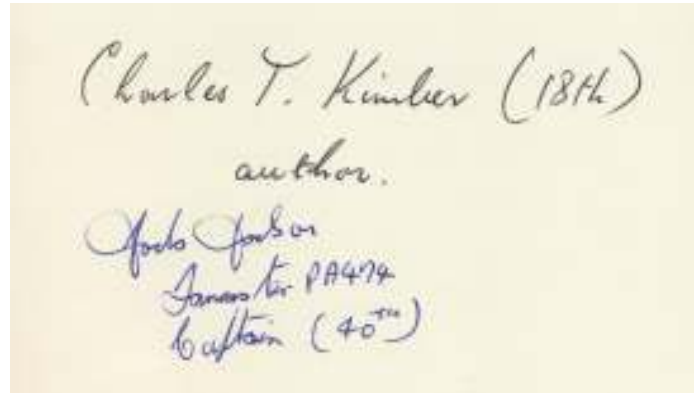 Charles T. Kimber (18th)
author.
Jacko Jackson
Lancaster PA474
Captain (40TH)